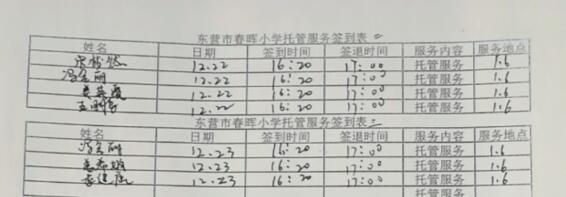 东营市春晖小学托管服务签到表
姓名 日期 签到时间 签退时间 服务内容 服务地点
12.22 16:20 17:00 托管服务 1.6
冯金丽 12.22 16:20 17:00 托管服务 1.6
12.22 16:20 17:00 托管服务 1.6
12.22 16:20 17:00 托管服务 1.6
东营市春晖小学托管服务签到表
姓名 日期 签到时间 签退时间 服务内容 服务地点
12.23 16:20 17:00 托管服务 1.6
12.23 16:20 17:00 托管服务 1.6
12.23 16:20 17:00 托管服务 1.6
托管服务